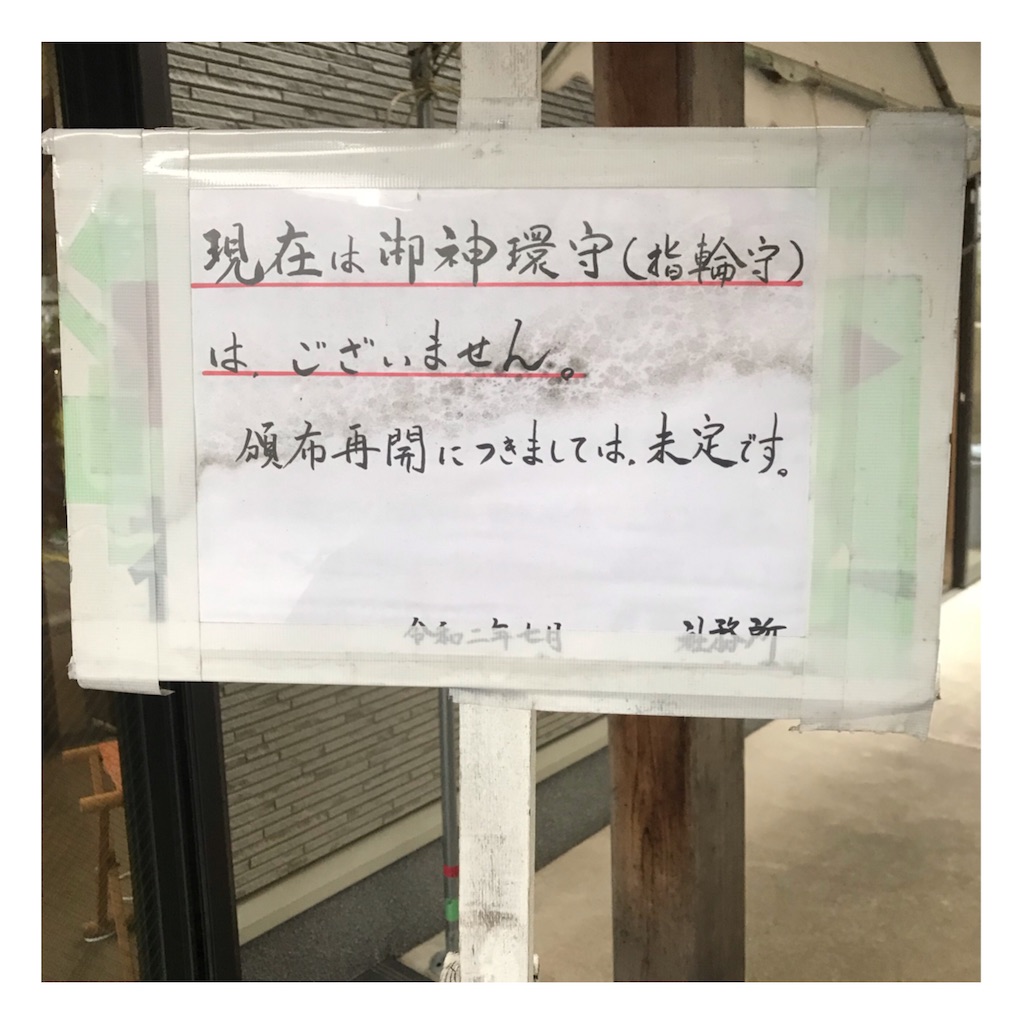 現在は御神環守(指輪守)
は、ございません。
頒布再開につきましては、未定です。
令和二年七月 社務所